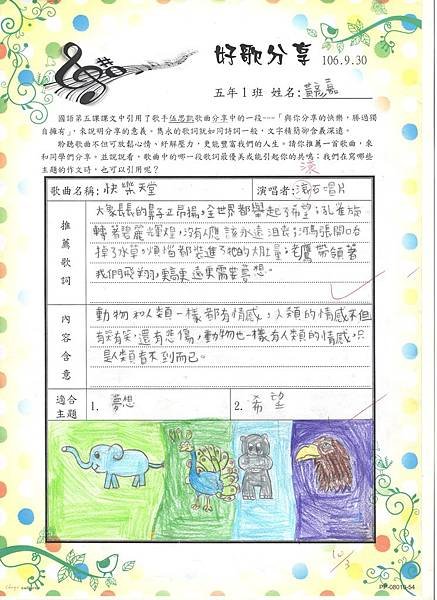 好歌分享 106.9.30
五年1班 姓名:黃嘉嘉
國語第五課課文中引用了歌手伍思凱歌曲分享中的一段---「與你分享的快樂,勝過獨
自擁有」,來說明分享的意義。雋永的歌詞就如同詩詞一般,文字精簡卻含義深遠。
聆聽歌曲不但可放鬆心情、紓解壓力,更能豐富我們的人生。請你推薦一首歌曲,來
和同學們分享,並說說看,歌曲中的哪一段歌詞最優美或能引起你的共鳴;我們在寫哪些
主題的作文時,也可以引用呢?
滾
歌曲名稱:快樂天堂 演唱者:滾石唱片
推薦歌詞
大象長長的鼻子正昂揚,全世界都舉起了希望;孔雀旋
轉著碧麗輝煌,沒有人應該永遠沮喪;河馬張開口吞
掉了水草,煩惱都裝進牠的大肚量;老鷹帶領著
我們飛翔,更高更遠更需要夢想。
內容含意
動物和人類一樣都有情感,人類的情感不但
有笑有哭,還有悲傷,動物也一樣有人類的情感,只
是人類看不到而已。
適合主題 1. 夢想 2. 希望
10/3
PP-08010-54